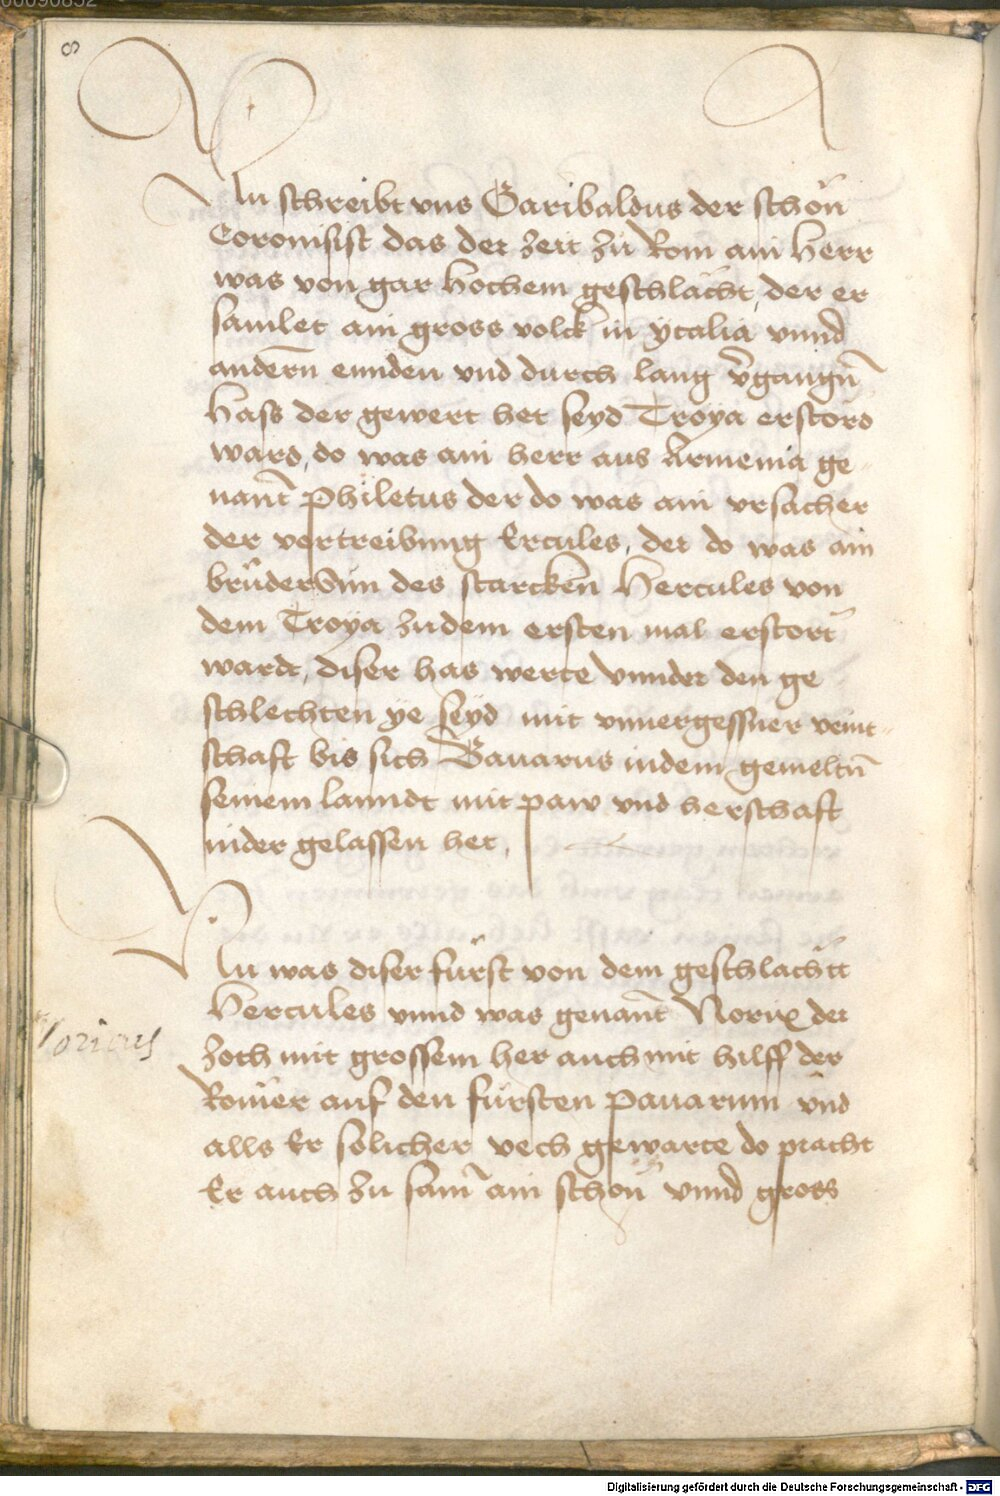 8
Nu schreibt vns Garibaldus der schön
Coronisist das der zeit zu Rom ain herr
was von gar hochem geschlächt, der er
samlet ain gross volck in ytalia vnnd
andern ennden vnd durch lang v̄gangn̄
hass der gewert het seyd Troya erstord
ward, do was ain herr aus Armenia ge
nant philetus der do was ain vrsacher
der vertreibung Ercules, der do was ain
brudersun des starcken Hercules von
dem Troya zudem ersten mal erstort
wardt, diser has werte vnnder den ge
schlechten ye seyd mit vnuergessner veint
schaft bis sich Bauarus indem gemeltn̄
seinem lanndt mit paw vnd herschaft
nider gelassen het,
Nu was diser fürst von dem geschlächtt
Hercules vnnd was genant Norix der
zoch mit grossem her auch mit hilff der
Romer auf den fürsten pauarum vnd
alls Er sölicher vech gewarte do pracht
Er auch zu sam ain schön vnnd gross
Noricus
Digitalisierung gefördert durch die Deutsche Forschungsgemeinschaft - DFG